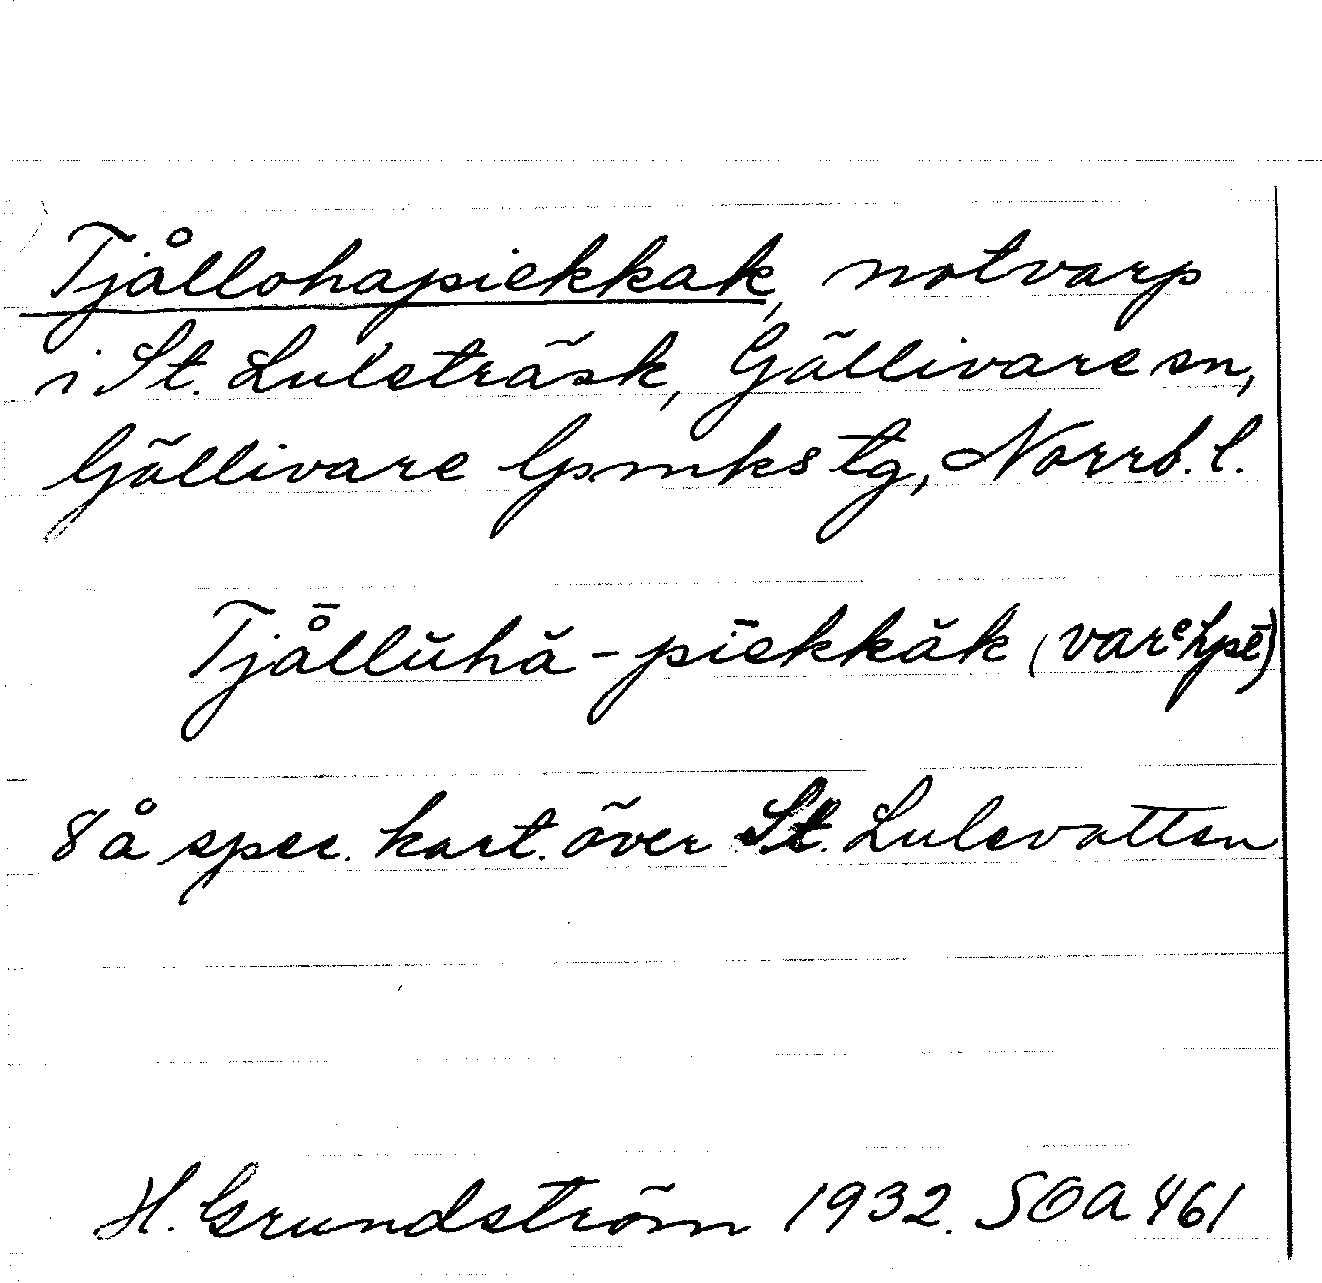 Tjållohapiekkak, notvarp
i St. Luleträsk, Gällivare sn,
Gällivare lpmks tg, Norrb. l.
Tjå̄llŭhă-pīekkăk (
8 å spec. kart. över St. Lulevatten
H. Grundström 1932. SOA 461